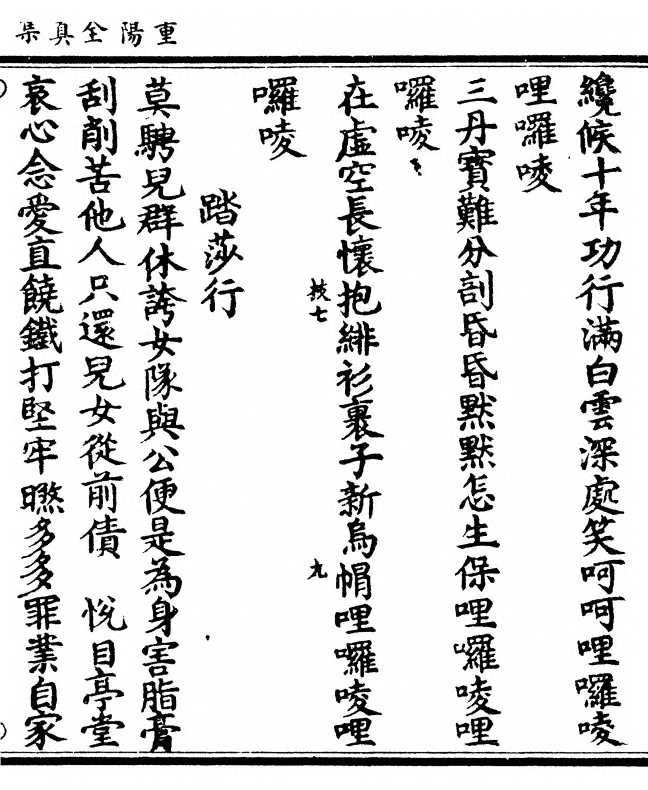 重陽全真集
纔候十年功行滿白雲深處笑呵呵哩囉唛
哩囉唛
三丹寶難分剖昏昏默默怎生保哩囉唛哩
囉唛
在虛空長懷抱緋衫裹子新烏帽哩囉唛哩
技七
九
囉唛
踏莎行
莫騁兒群休誇女隊與公便是為身害脂膏
刮削苦他人只還兒女從前債 悅目亭堂
哀心念愛直饒鐵打堅牢㬠多多罪業自家